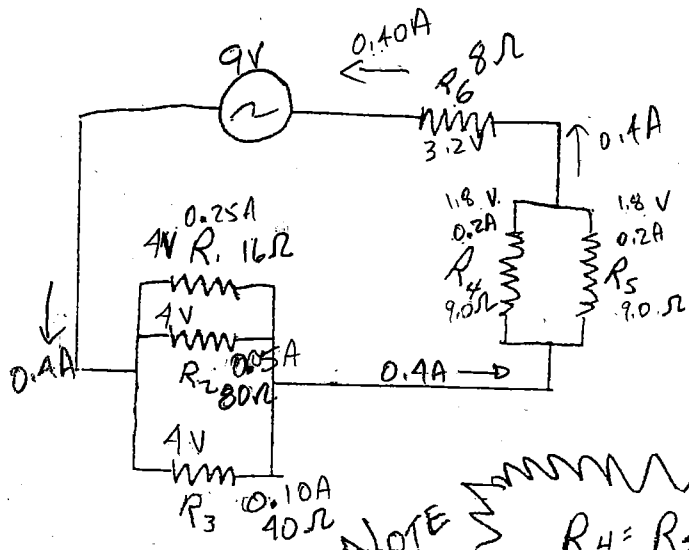 9V
0.40A
R6 8Ω
3.2V
0.4A
1.8 V
0.2A
R4
9.0Ω
1.8 V
0.2A
R5
9.0Ω
0.25A
4V R1 16Ω
4V
R2 0.05A
80Ω
0.4A
0.4A
4V
R3 0.10A
40Ω
NOTE
R4 =